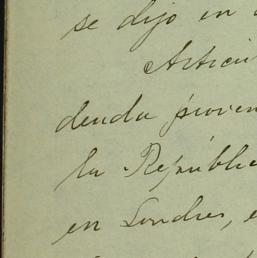 se dijo en
Artícu
deuda provien
la República
en Londres, e